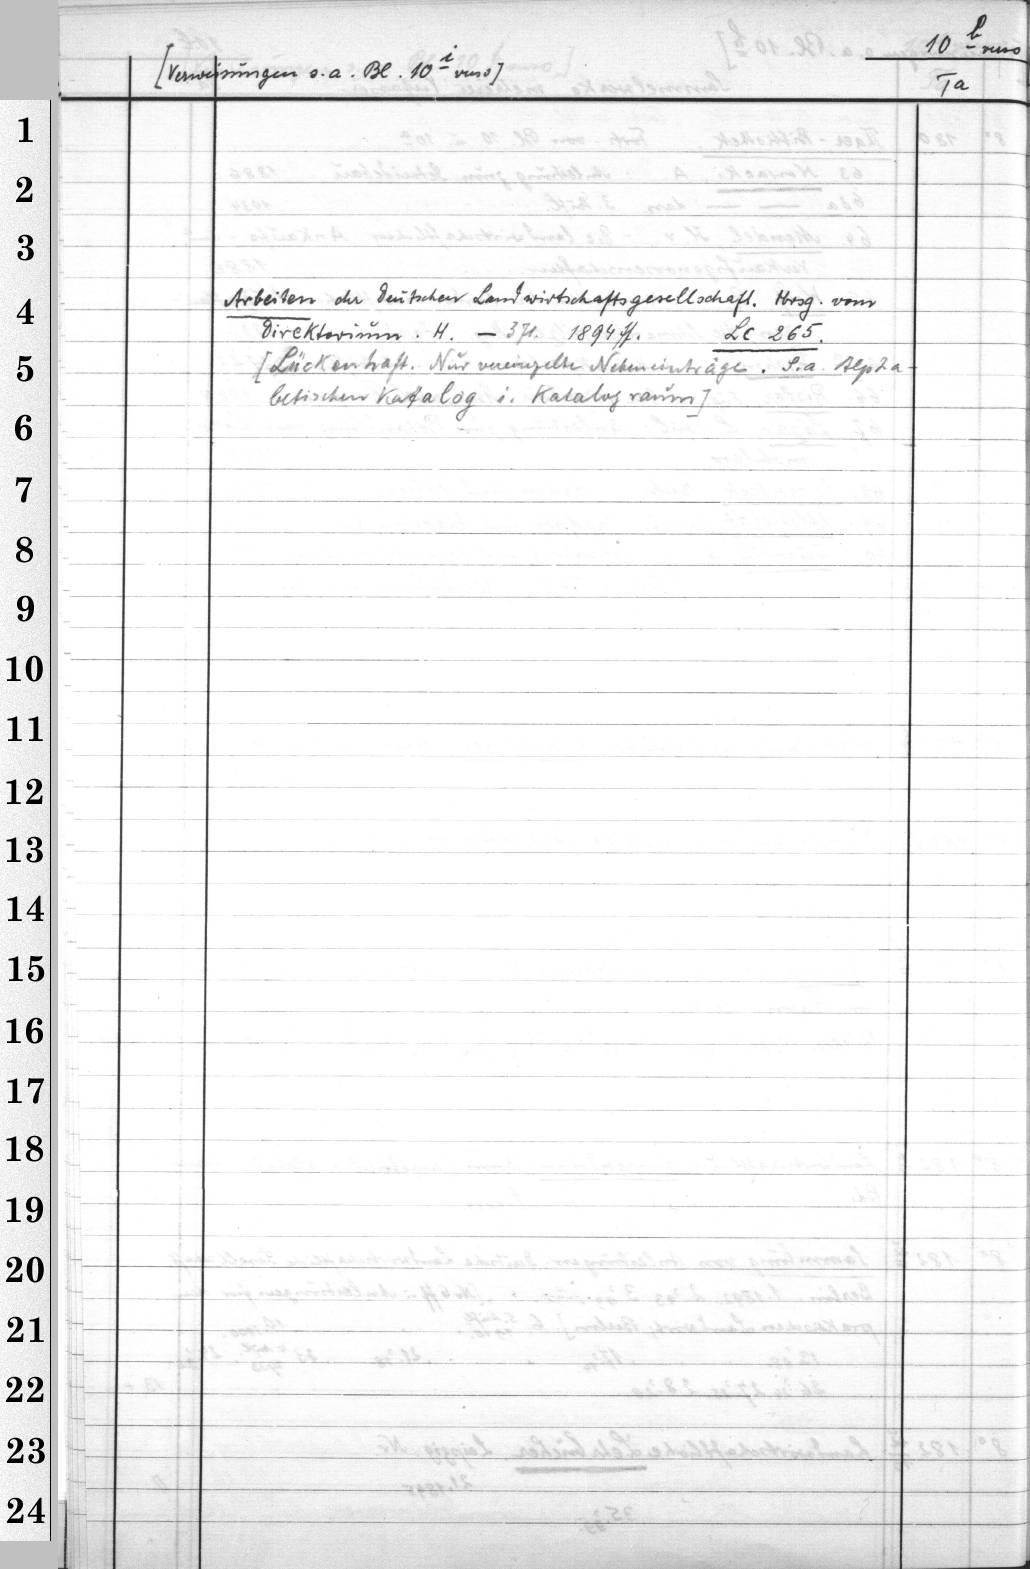 10 b verso
[Verweisungen s.a. Bl. 10 i verso]
Ta
1
2
3
4
Arbeiten der Deutschen Landwirtschaftsgesellschaft. Hrsg. vom
Direktorium. H. — 371. 1894 ff. Lc 265.
5
[Lückenhaft. Nur vereinzelte Nebeneinträge. S.a. Alpha-
betischen Katalog i. Katalograum]
6
7
8
9
10
11
12
13
14
15
16
17
18
19
20
21
22
23
24